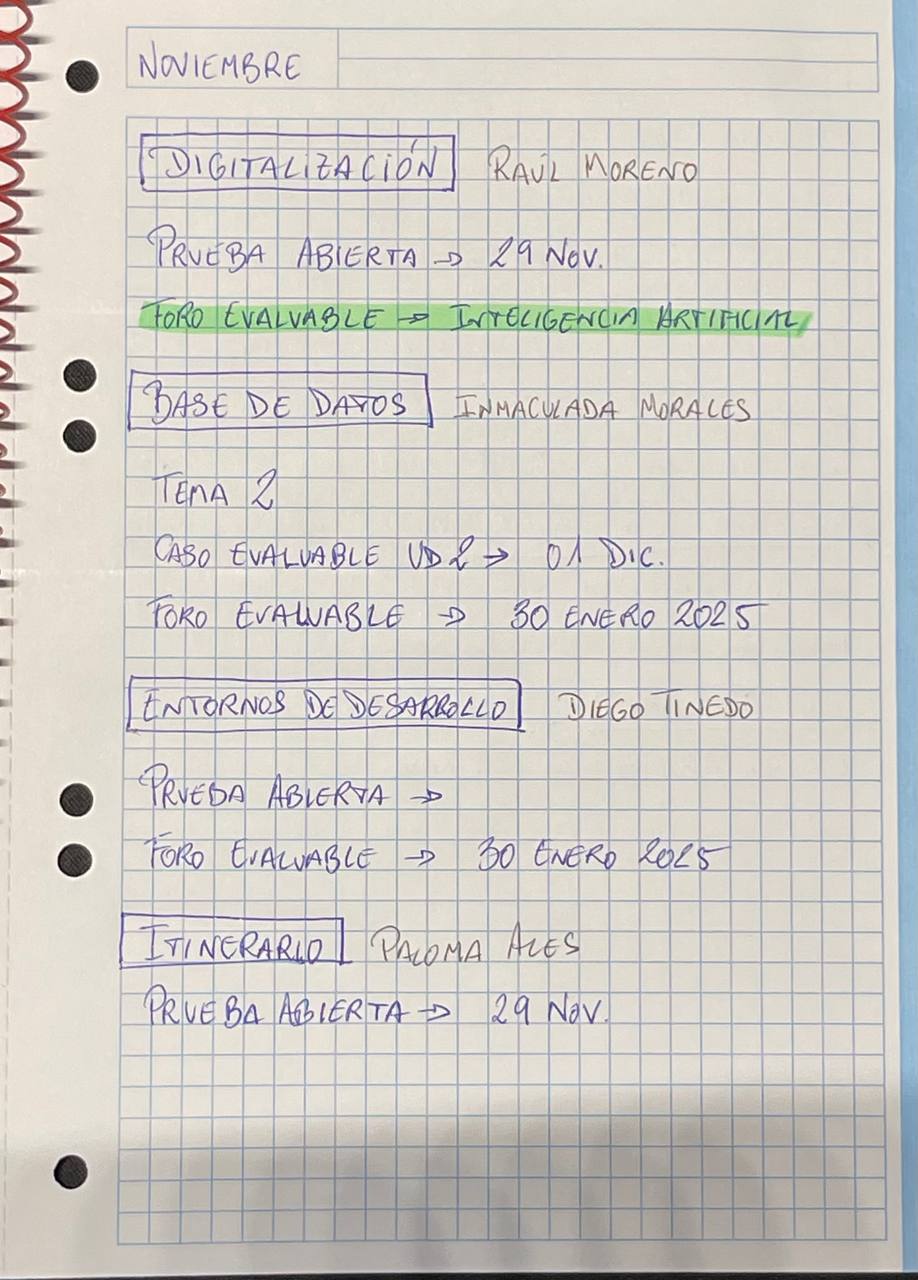 NOVIEMBRE
DIGITALIZACIÓN RAÚL MORENO
PRUEBA ABIERTA → 29 NOV.
FORO EVALUABLE → INTELIGENCIA ARTIFICIAL
BASE DE DATOS INMACULADA MORALES
TEMA 2
CASO EVALUABLE UD2 → 01 DIC.
FORO EVALUABLE → 30 ENERO 2025
ENTORNOS DE DESARROLLO DIEGO TINEDO
PRUEBA ABIERTA →
FORO EVALUABLE → 30 ENERO 2025
ITINERARIO PALOMA ALES
PRUEBA ABIERTA → 29 NOV.